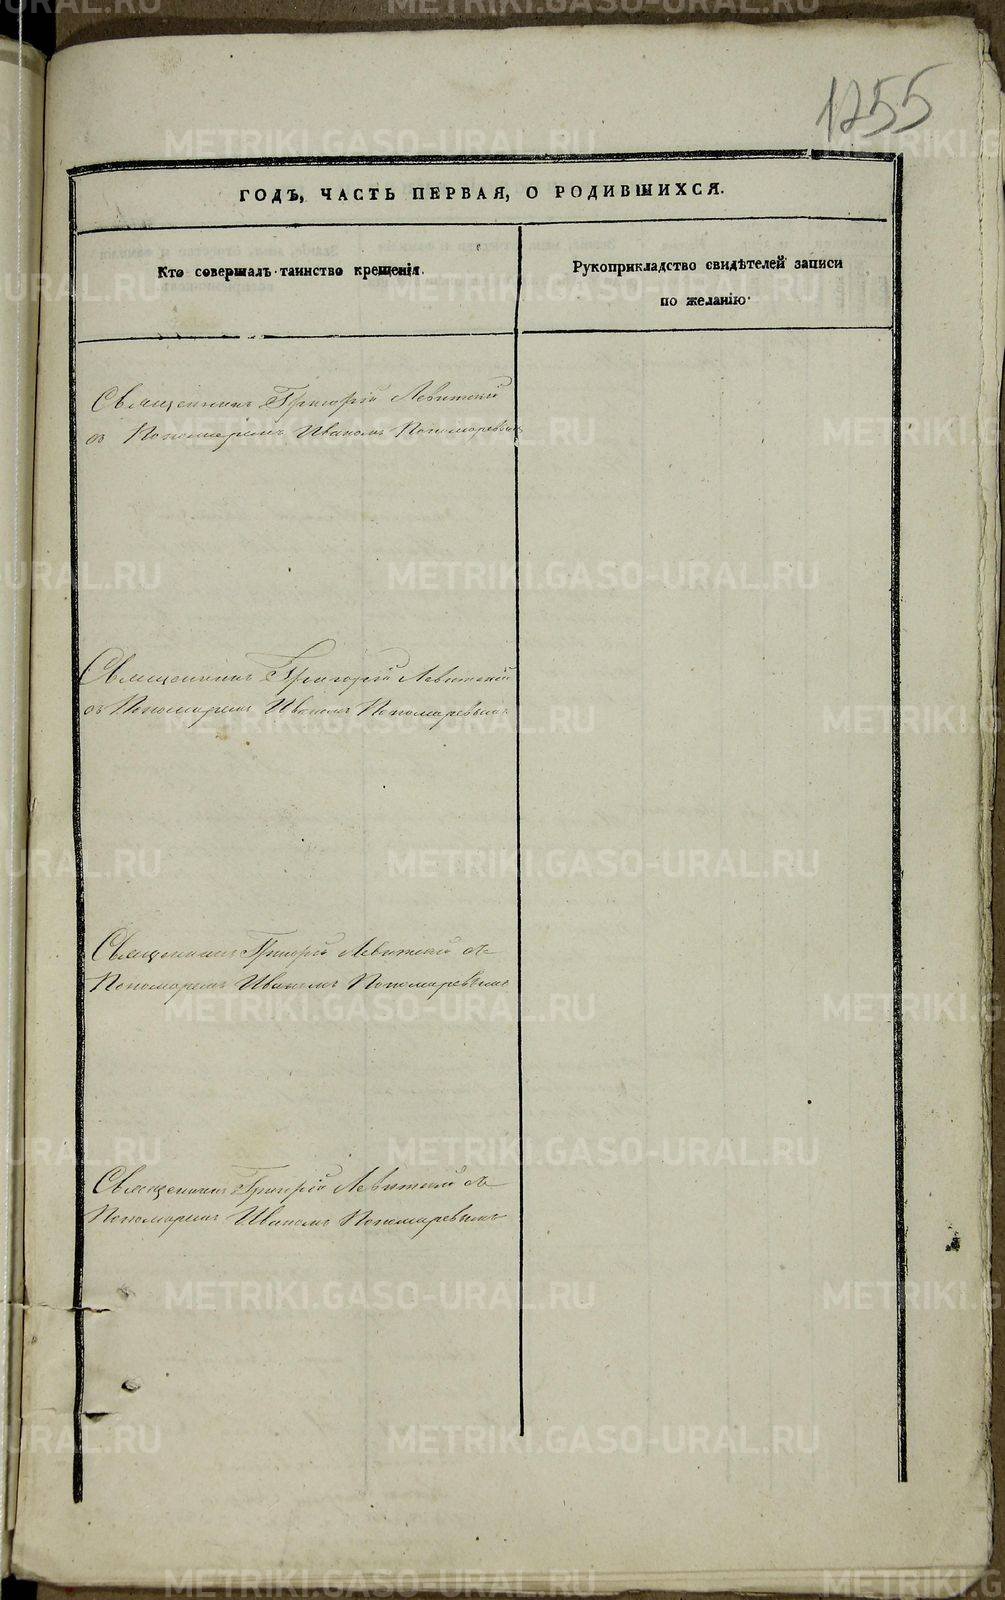 1255
ГОДЪ, ЧАСТЬ ПЕРВАЯ, О РОДИВШИХСЯ.
Кто совершалъ таинство крещенія.
Рукоприкладство свидѣтелей записи
по желанію.
Священникъ Григорій Левитскій
съ Пономаремъ Иваномъ Пономаревымъ
Священникъ Григорій Левитскій
съ Пономаремъ Иваномъ Пономаревымъ
Священникъ Григорій Левитскій съ
Пономаремъ Иваномъ Пономаревымъ
Священникъ Григорій Левитскій съ
Пономаремъ Иваномъ Пономаревымъ
METRIKI.GASO-URAL.RU